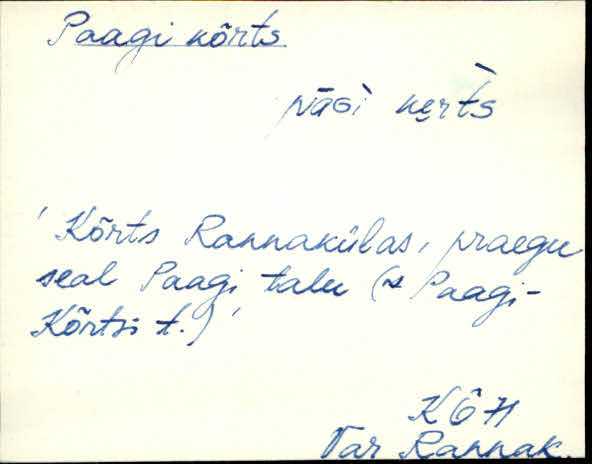 Paagi kõrts
pāGì ke̮r̀t́s
' Kõrts Rannakülas, praegu
seal Paagi talu (~ Paagi-
Kõrtsi t.) '
KÕH
Var Rannak.